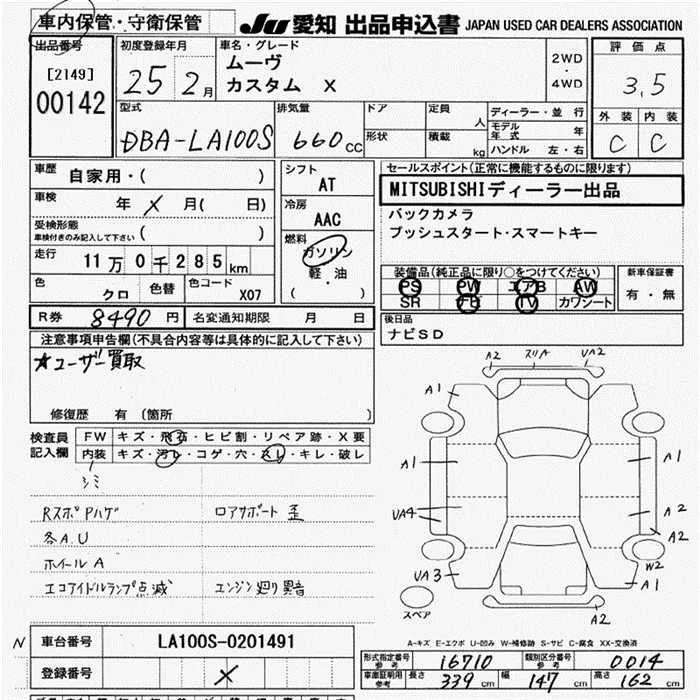 車内保管・守衛保管
JU 愛知 出品申込書 JAPAN USED CAR DEALERS ASSOCIATION
出品番号 [2149] 00142
初度登録年月 25 2月
車名・グレード ムーヴ
カスタム X
2WD・4WD
評価点 3.5
外装 内装
C C
型式 DBA-LA100S
排気量 660cc
ドア
形状
定員 人
積載 kg
ディーラー・並行
モデル年式 年
ハンドル 左・右
車歴 自家用・( )
車検 年 X 月( 日)
受検形態
車検付きのみ記入して下さい ( )
走行 11万0千285km
色 クロ 色替 色コード X07
シフト AT
冷房 AAC
燃料 ガソリン
軽・油
( )
セールスポイント(正常に機能するものに限ります)
MITSUBISHIディーラー出品
バックカメラ
プッシュスタート・スマートキー
装備品(純正品に限り○をつけてください)
PS PW エアB AW
SR FB TV カワシート
新車保証書
有・無
R券 8490円 名変通知期限 月 日
後日品
ナビSD
注意事項申告欄(不具合内容等は具体的に記入して下さい)
★ユーザー買取
修復歴 有 (箇所 )
検査員記入欄
FW キズ・飛石・ヒビ割・リペア跡・X要
内装 キズ・汚レ・コゲ・穴・スレ・キレ・破レ
シミ
RスポPハゲ ロアサポート歪
各A.U
ホイールA
エコアイドルランプ点滅 エンジン廻り異音
A2 スリA UA2
A1
A1 A1
UA4 A2
A2
UA3 W2
A1
スペア
A2 XA2
A-キズ E-エクボ U-凹み W-補修跡 S-サビ C-腐食 XX-交換済
N
車台番号 LA100S-0201491
登録番号 X
形式指定番号 参考 16710 類別区分番号 参考 0014
車庫証明用 参考 長さ 339cm 幅 147cm 高さ 162cm